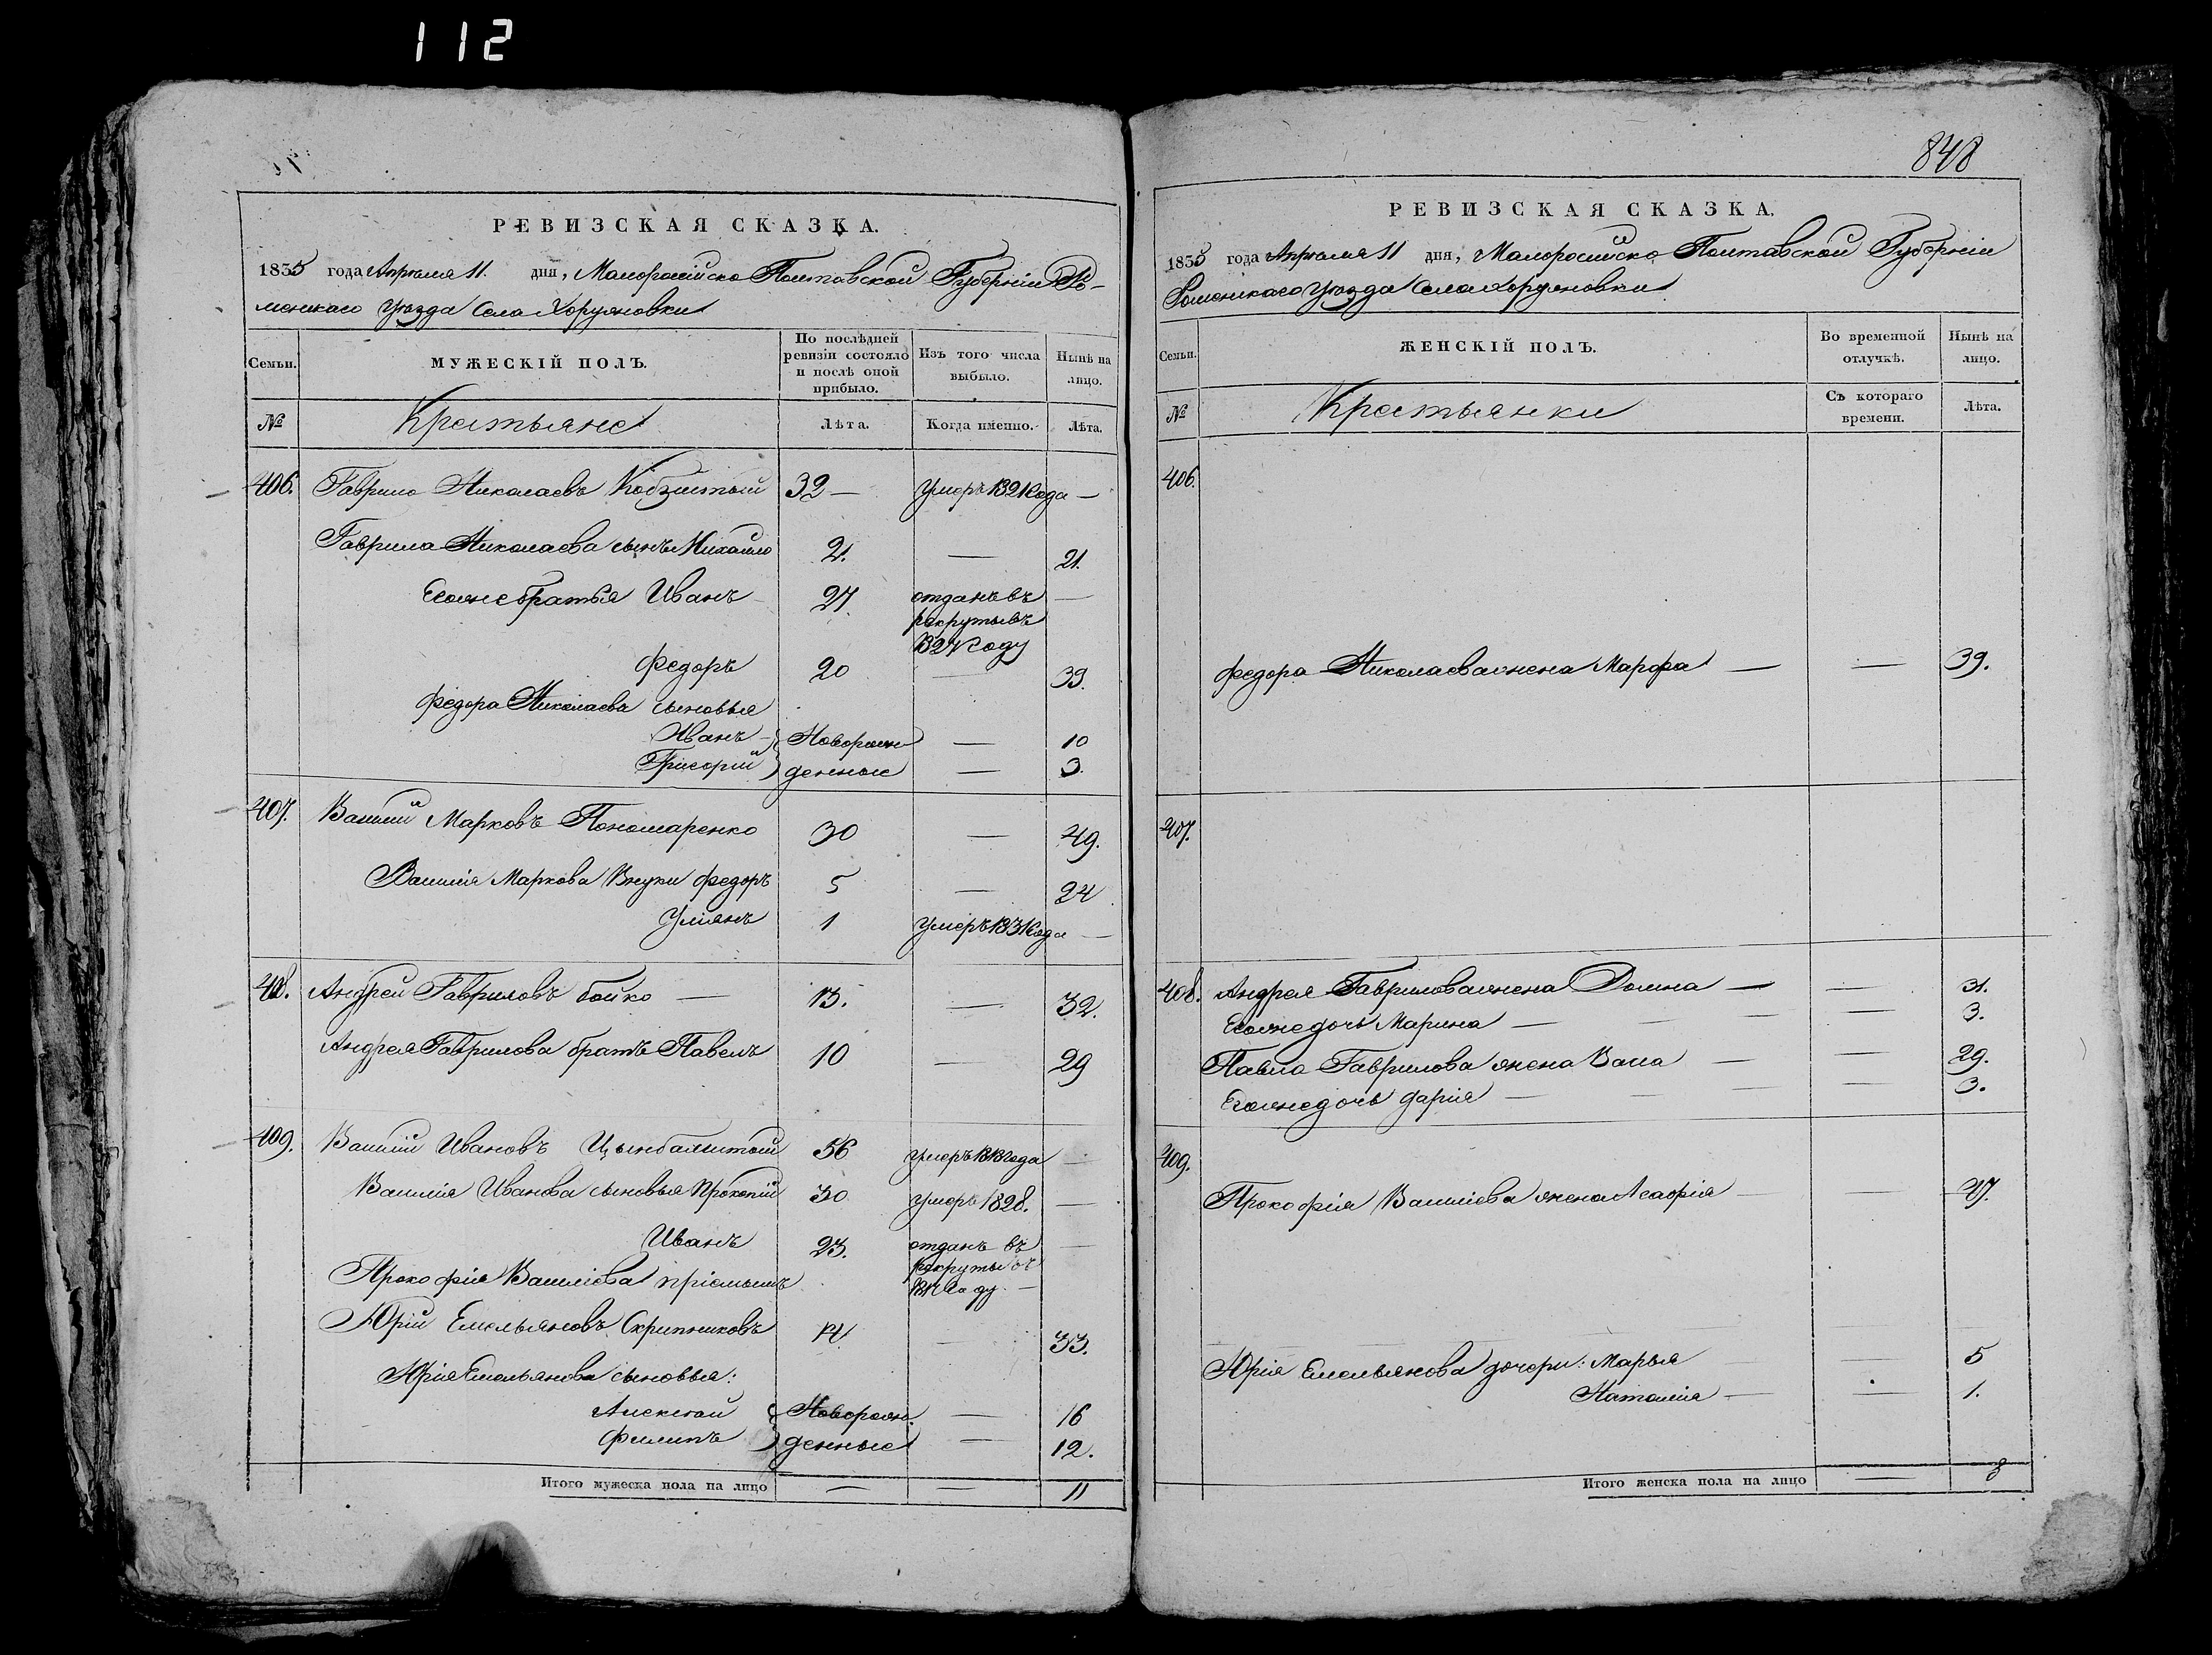 112
РЕВИЗСКАЯ СКАЗКА.
1835 года Апреля 11. дня, Малоросийско Полтавской Губернии Ро-
менскаго уезда села Хоруновки
Семьи. МУЖЕСКІЙ ПОЛЪ. По послѣдней ревизіи состояло и послѣ оной прибыло. Изъ того числа выбыло. Нынѣ на лицо.
№ Крестьяне Лѣта. Когда именно. Лѣта.
406. Гаврило Николаевъ Кобзистый 32 — умеръ 1821 года —
Гаврила Николаева сынъ Михайло 2. — 21.
Егоже братья Иванъ 27 отданъ въ —
рекруты въ
1824 году
Федоръ 20 — 39.
Федора Николаева сыновья
Иванъ } Новорож — 10
Григорий } денные — 3.
407. Василий Марковъ Пономаренко 30 — 49.
Василія Маркова внуки Федоръ 5 — 24
Уліянъ 1 умеръ 1831 года —
408. Андрей Гавриловъ бойко — 13. — 32.
Андрея Гаврилова братъ Павелъ 10 — 29
409. Василій Ивановъ Цынбалистый 56 умеръ года —
Василія Иванова сыновья Прокопій 30 умеръ 1828. —
Иванъ 23. отданъ въ —
рекруты въ
году —
Прокофія Василіева пріемышъ
Юрій Емельяновъ Скрипниковъ 14 — 33.
Юрія Емельянова сыновья:
Алексей { Новорож. — 16
Филипъ } денные — 12.
Итого мужеска пола на лицо — — 11
848
РЕВИЗСКАЯ СКАЗКА.
1835 года Апреля 11 дня, Малоросийско Полтавской Губернии
Роменскаго уезда села Хоруновки
Семьи. ЖЕНСКІЙ ПОЛЪ. Во временной отлучкѣ. Нынѣ на лицо.
№ Крестьянки Съ котораго времени. Лѣта.
406.
Федора Николаева жена Марфа — — 39.
407.
408. Андрея Гаврилова жена Домна — — 31.
Егоже дочь Марина — — 3.
Павла Гаврилова жена Васа — — 29.
Егоже дочь Дарія — — 3.
409.
Прокофія Василіева жена Агафія — — 47.
Юрія Емельянова дочери: Марья — 5
Наталія — — 1.
Итого женска пола на лицо — 8